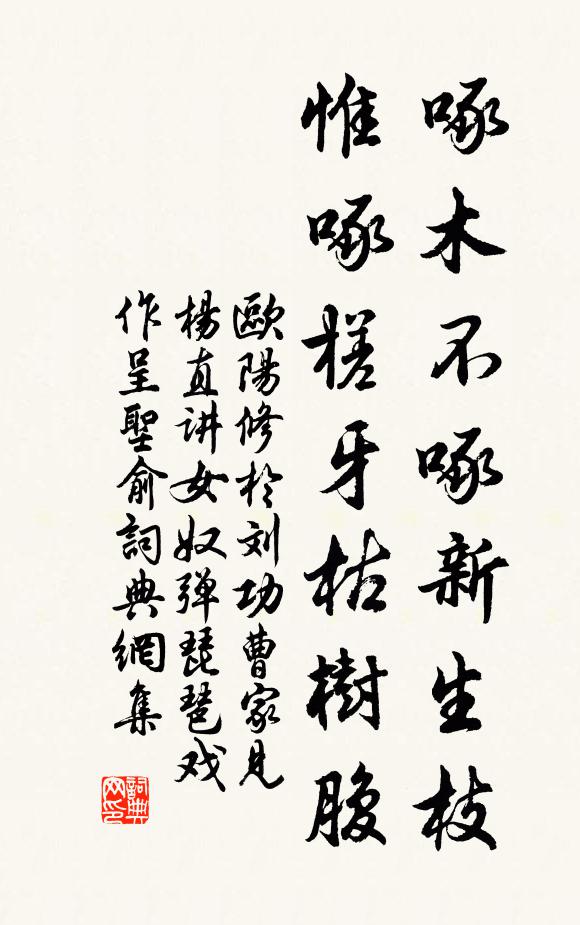 啄木不啄新生枝
惟啄槎牙枯樹腹
歐陽修於刘功曹家見
楊直讲女奴弾琵琶戏
作呈聖俞詞典網集
詞典网印